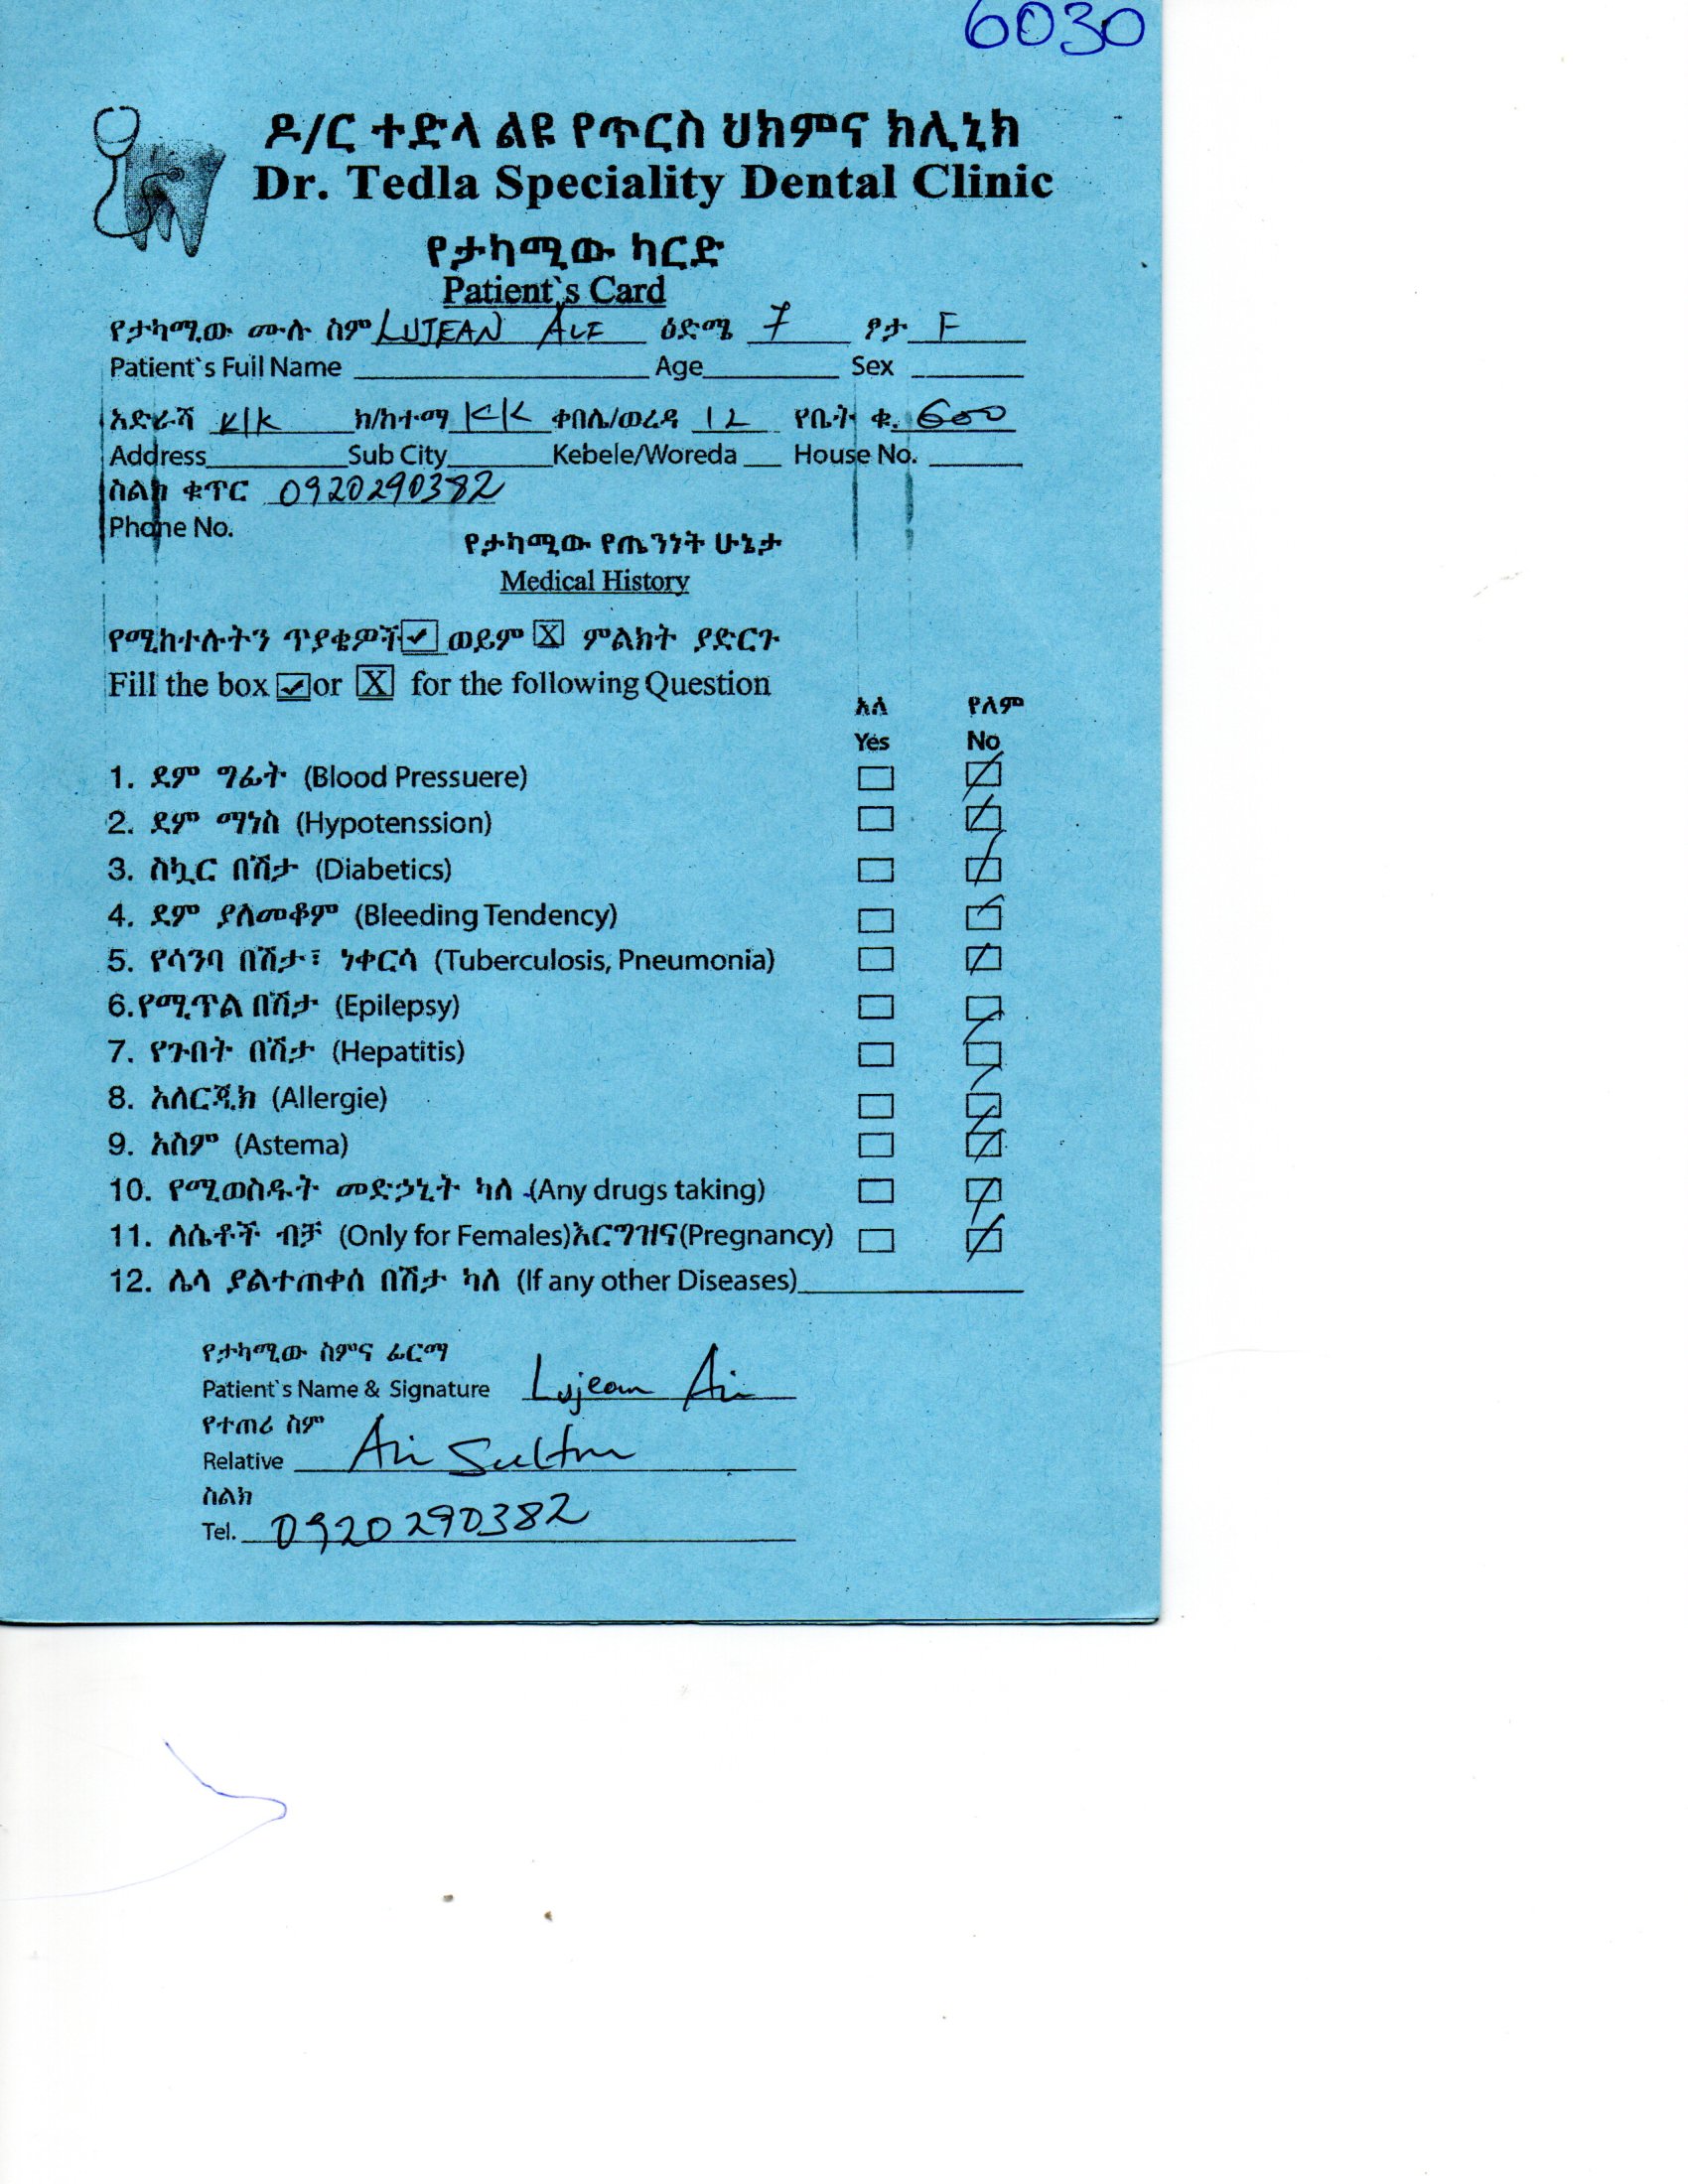 6030
ዶ/ር ተድላ ልዩ የጥርስ ህክምና ክሊኒክ
Dr. Tedla Speciality Dental Clinic
የታካሚው ካርድ
Patient`s Card
የታካሚው ሙሉ ስም LUJEAN ALI ዕድሜ 7 ፆታ F
Patient`s Full Name Age Sex
አድራሻ K/K ክ/ከተማ K/K ቀበሌ/ወረዳ 12 የቤት ቁ. 600
Address Sub City Kebele/Woreda House No.
ስልክ ቁጥር 0920290382
Phone No.
የታካሚው የጤንነት ሁኔታ
Medical History
የሚከተሉትን ጥያቄዎች ✓ ወይም X ምልክት ያድርጉ
Fill the box ✓ or X for the following Question
አለ የለም
Yes No
1. ደም ግፊት (Blood Pressuere)
2. ደም ማነስ (Hypotenssion)
3. ስኳር በሽታ (Diabetics)
4. ደም ያለመቆም (Bleeding Tendency)
5. የሳንባ በሽታ፣ ነቀርሳ (Tuberculosis, Pneumonia)
6.የሚጥል በሽታ (Epilepsy)
7. የጉበት በሽታ (Hepatitis)
8. አለርጂክ (Allergie)
9. አስም (Astema)
10. የሚወስዱት መድኃኒት ካለ (Any drugs taking)
11. ለሴቶች ብቻ (Only for Females)እርግዝና(Pregnancy)
12. ሌላ ያልተጠቀሰ በሽታ ካለ (If any other Diseases)
የታካሚው ስምና ፊርማ
Patient`s Name & Signature Lujean Ali
የተጠሪ ስም
Relative Ali Sultan
ስልክ
Tel. 0920290382